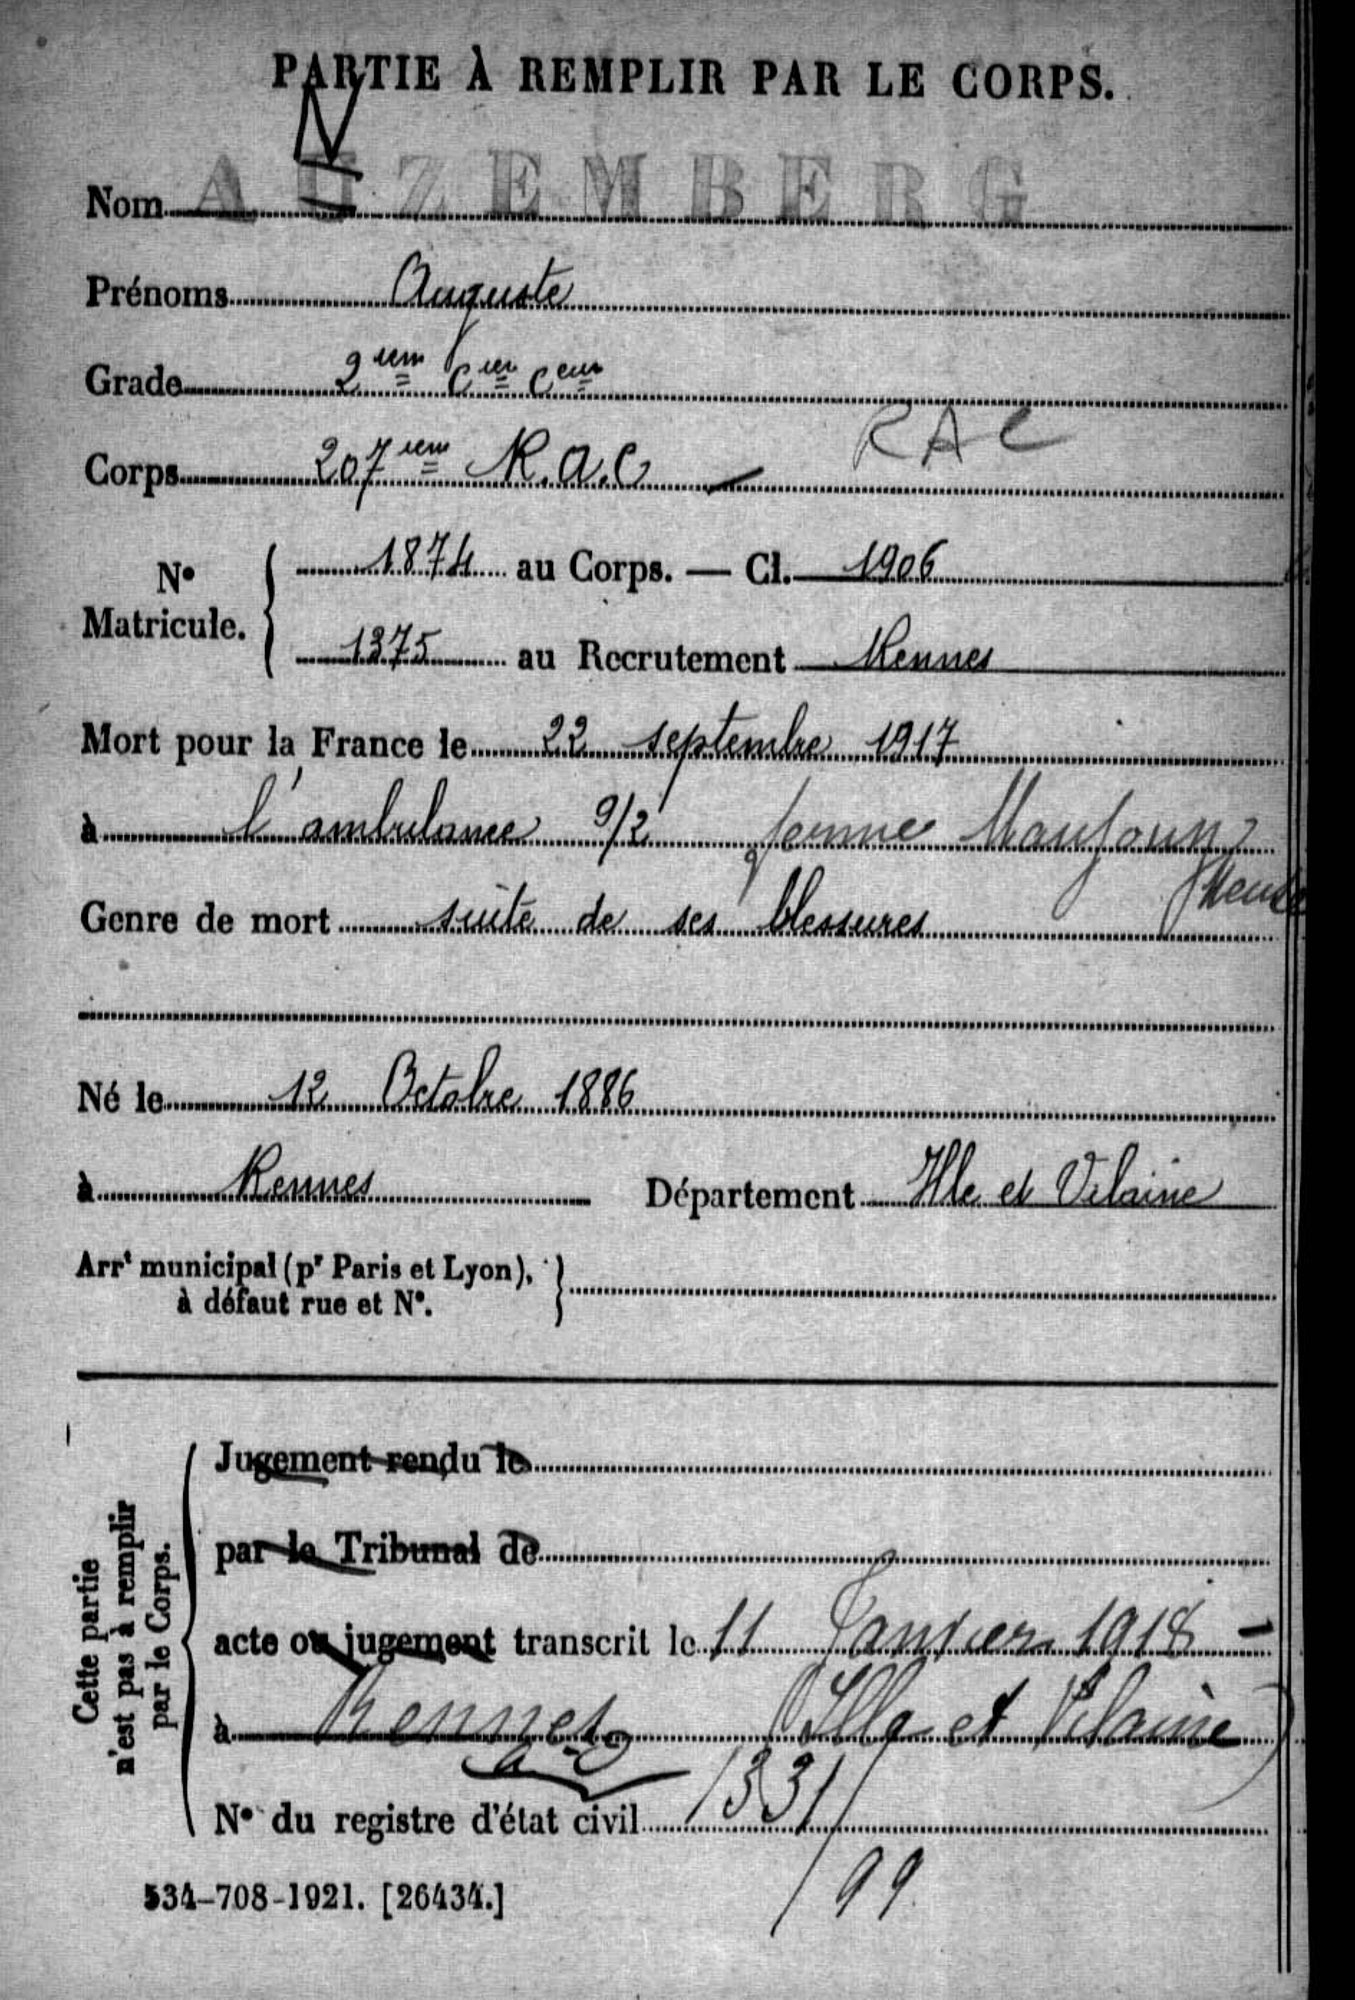 PARTIE À REMPLIR PAR LE CORPS.
N
Nom AUZEMBERG
Prénoms Auguste
Grade 2ièm Cier Ceur
Corps 207ièm R.A.C RAC
N° Matricule. 1874 au Corps. — Cl. 1906
1375 au Recrutement Rennes
Mort pour la France le 22 septembre 1917
à l'ambulance 9/2 ferme Maujouy
Meuse
Genre de mort suite de ses blessures
Né le 12 Octobre 1886
à Rennes Département Ille et Vilaine
Arrt municipal (pr Paris et Lyon),
à défaut rue et N°.
Cette partie
n'est pas à remplir
par le Corps.
Jugement rendu le
par le Tribunal de
acte ou jugement transcrit le 11 Janvier 1918
à Rennes (Ille et Vilaine)
N° du registre d'état civil 1331/
534-708-1921. [26434.] /99